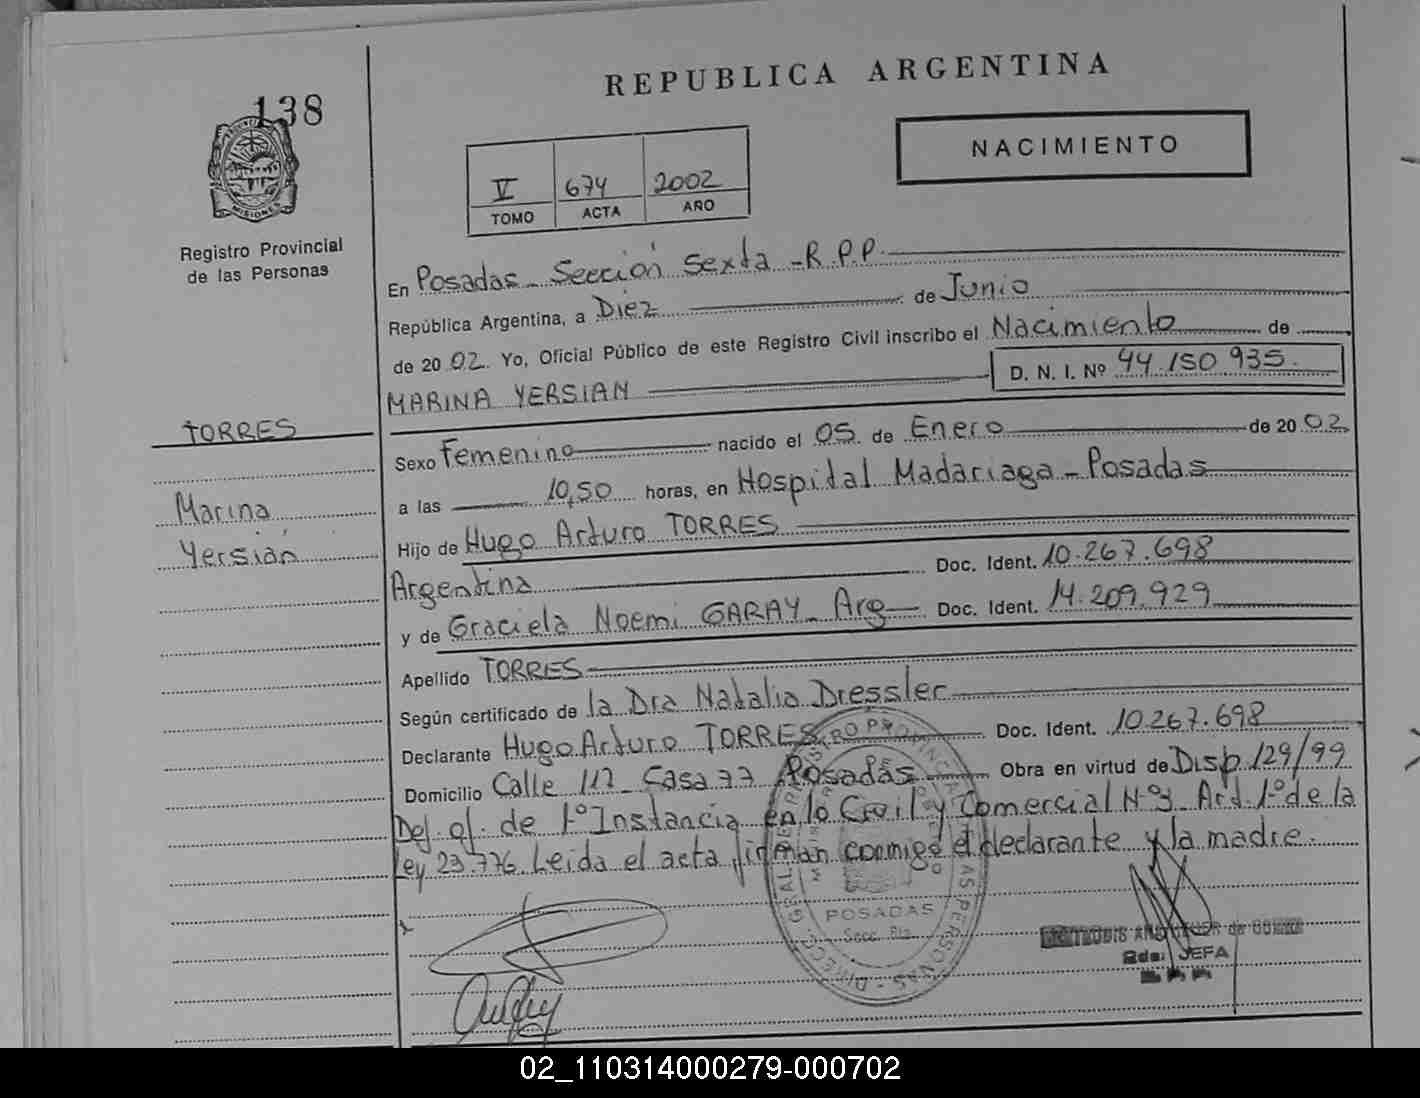 138
REPUBLICA ARGENTINA
NACIMIENTO
V 674 2002
TOMO ACTA AÑO
MISIONES
Registro Provincial
de las Personas
En Posadas - Sección Sexta - R.P.P.
República Argentina, a Diez de Junio
de 2002. Yo, Oficial Público de este Registro Civil inscribo el Nacimiento de
MARINA YERSIAN D. N. I. Nº 44.150.935.
TORRES
Marina
Yersián
Sexo Femenino nacido el 05 de Enero de 2002
a las 10,50 horas, en Hospital Madariaga - Posadas
Hijo de Hugo Arturo TORRES
Argentina Doc. Ident. 10.267.698
y de Graciela Noemi GARAY - Arg Doc. Ident. 14.209.929
Apellido TORRES
Según certificado de la Dra Natalia Dressler
Declarante Hugo Arturo TORRES Doc. Ident. 10.267.698
Domicilio Calle 112 - Casa 77 Posadas Obra en virtud de Disp. 129/99
Def. of. de 1º Instancia en lo Civil y Comercial Nº3 Art. 1º de la
Ley 23.776. Leida el acta firman conmigo el declarante y la madre.
POSADAS
JEFA
02_110314000279-000702